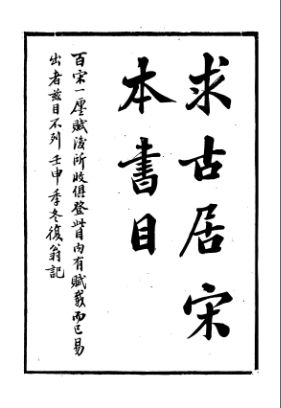 求古居宋
本書目
百宋一廛賦後所收俱登此目內有賦載而已易
出者茲目不列壬申季冬復翁記